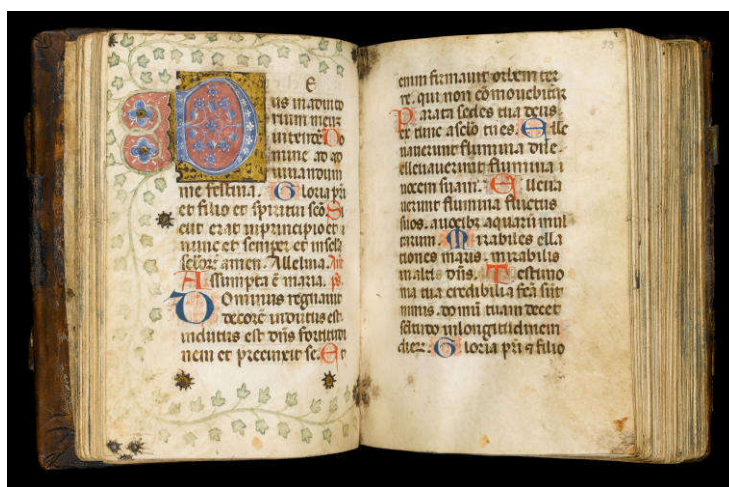 e
us in adiuto
rium meuz
intende Do
mine ad ad
iuuandum
me festina. Gloria p̄ri
et filio et spiritui sc̄o. Si
cut erat in principio et
nunc et semper et in sc̄la
sclōrꝫ amen. Alleluia. An̄
Assumpta ē maria. ps̄.
Dominus regnauit
decorē indutus est
indutus est dn̄s fortitudi
nem et precinxit se. Et
enim firmauit orbem ter
re. qui non cōmouebitur
Parata sedes tua deus
ex tunc a sc̄lo tu es. Ele
uauerunt flumina dn̄e.
elleuauerunt flumina
uocem suam. Elleua
uerunt flumina fluctus
suos. a uocibꝫ aquarū mul
tarum. Mirabiles ella
tiones maris. mirabilis
in altis dn̄s. Testimo
nia tua credibilia fc̄a sūt
nimis. domū tuam decet
sc̄titudo in longitudinem
dierꝫ. Gloria p̄ri ⁊ filio